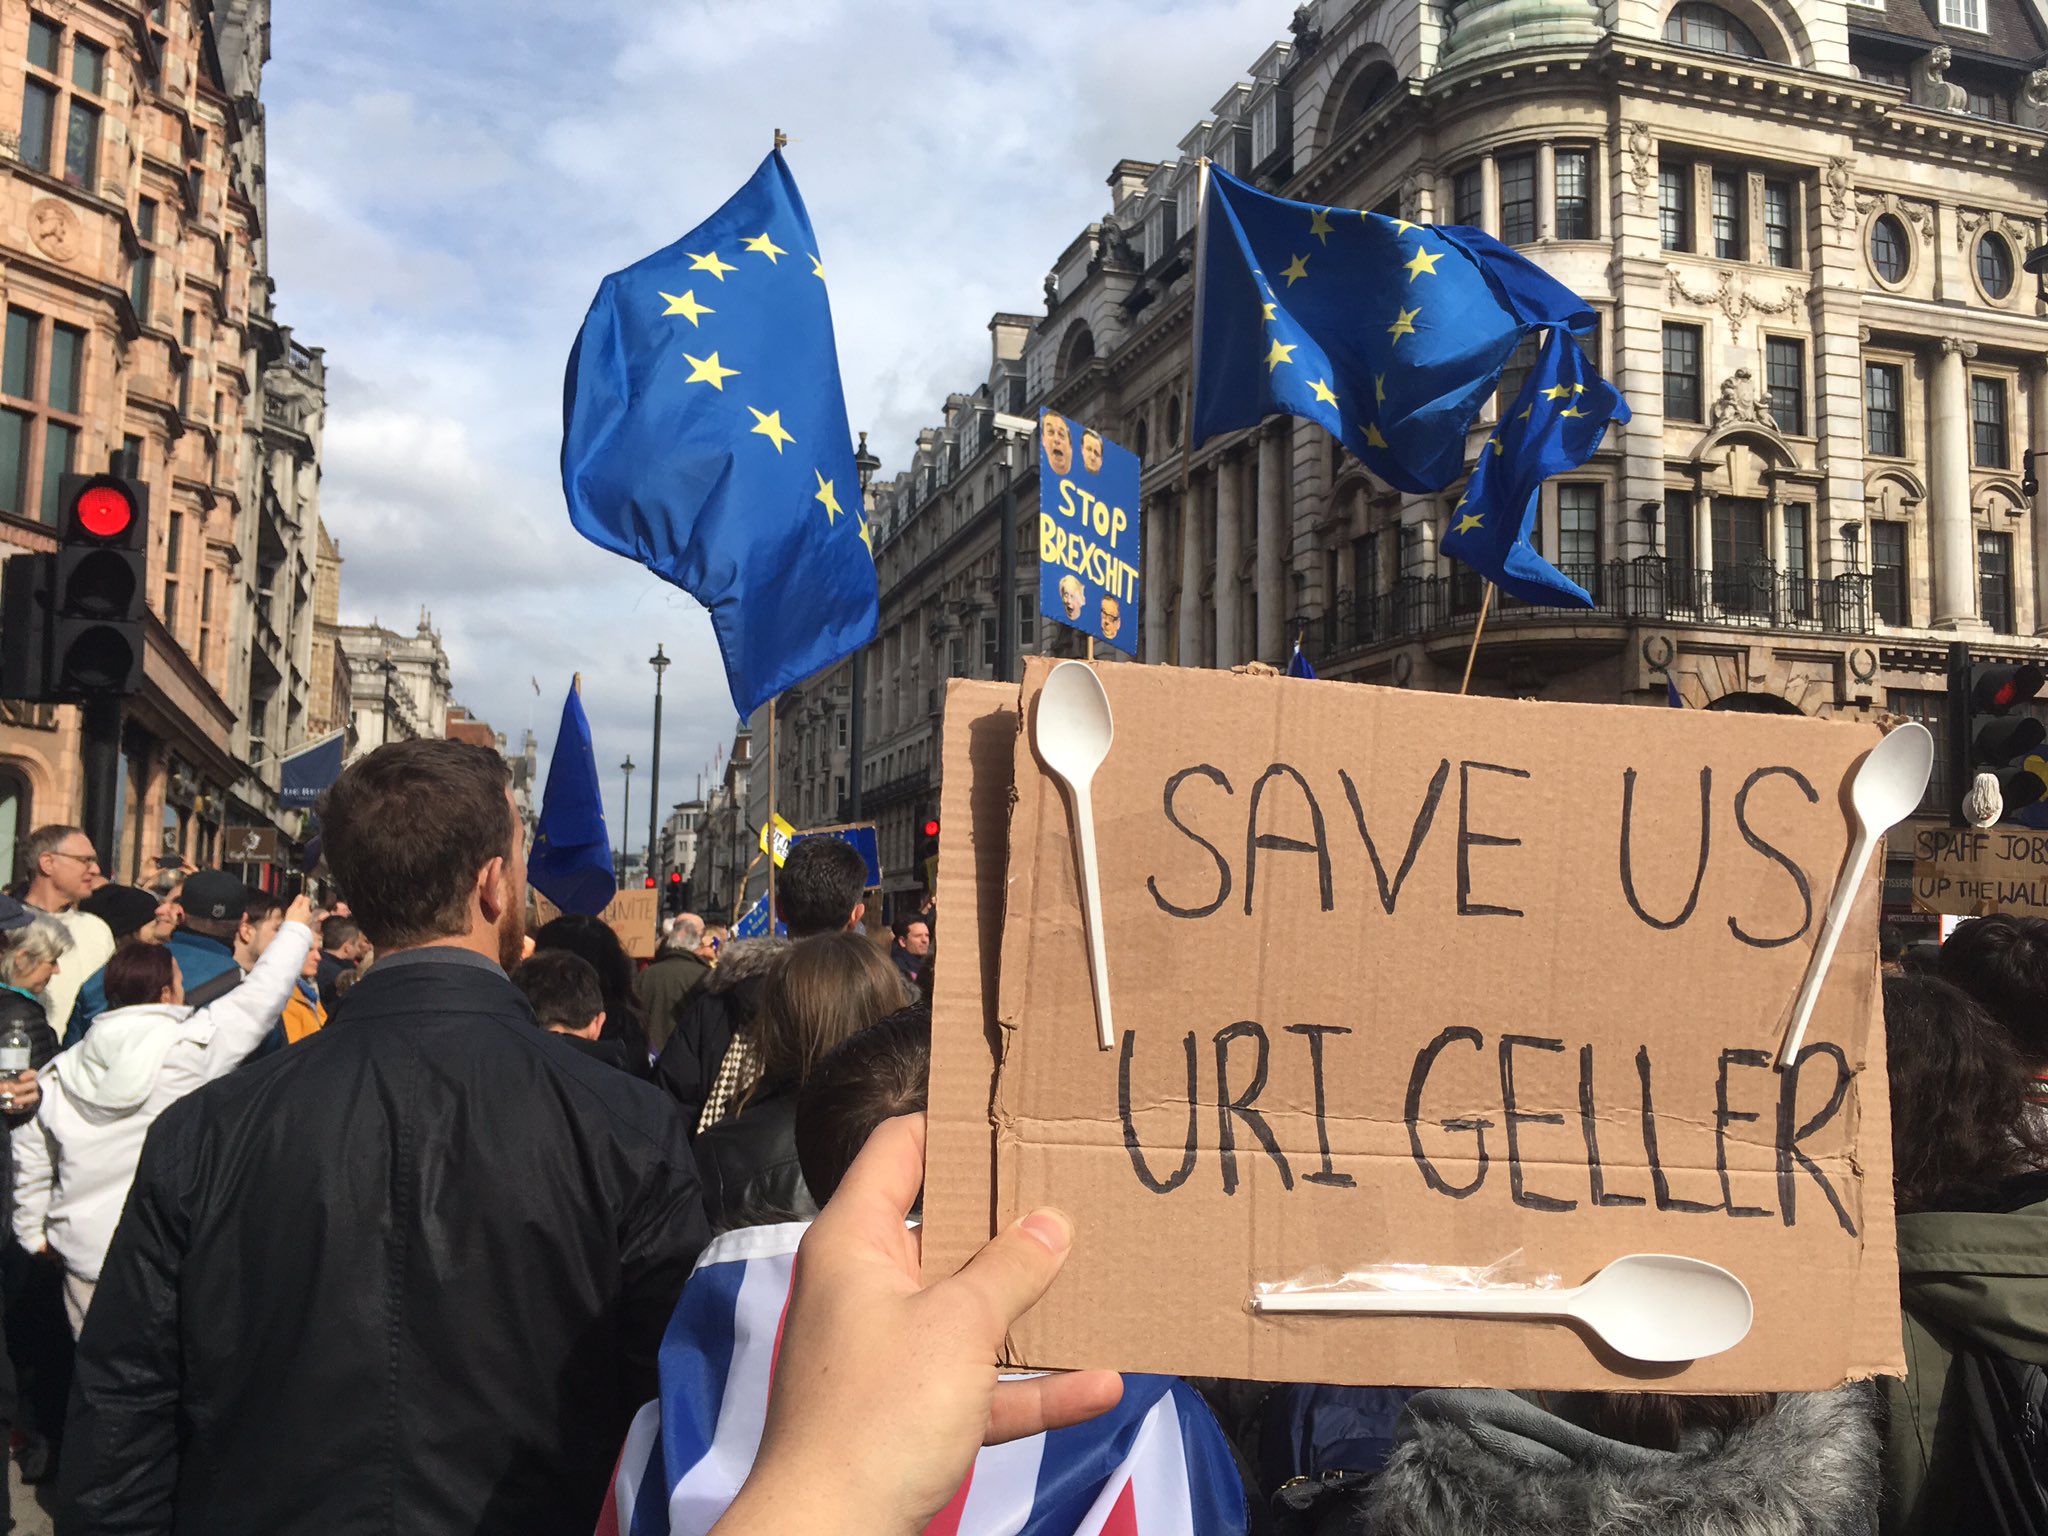 STOP
BREXSHIT
SAVE US
URI GELLER
SPAFF JOBS
UP THE WALL